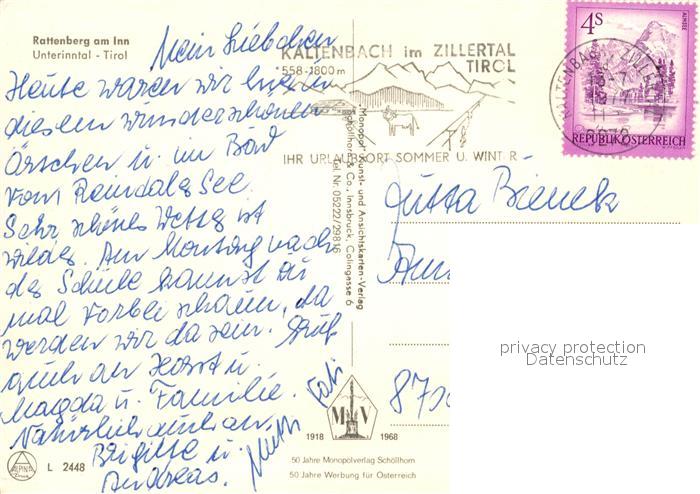 Rattenberg am Inn
Unterinntal - Tirol
Mein Liebchen
Heute waren wir hier in
diesem wunderschönen
Örtchen u. im Bad
vom Reindaler See.
Sehr schönes Wetter ist
wieder. Am Montag nach
der Schule kannst du
mal vorbei schauen, da
werden wir da sein. Gruß
auch an Horst u.
Magda u. Familie.
Natürlich auch an
Brigitte u.
Andreas.
KALTENBACH im ZILLERTAL
TIROL
558-1800 m
IHR URLAUBSORT SOMMER U. WINT R
4 S
ALMSEE
REPUBLIK ÖSTERREICH
"Monopol" Kunst- und Ansichtskarten-Verlag
Schöllhorn & Co., Innsbruck, Colingasse 6
Tel. Nr. 05222/29816
Jutta Bieneck
870
privacy protection
Datenschutz
M V
1918 1968
50 Jahre Monopolverlag Schöllhorn
50 Jahre Werbung für Österreich
L 2448